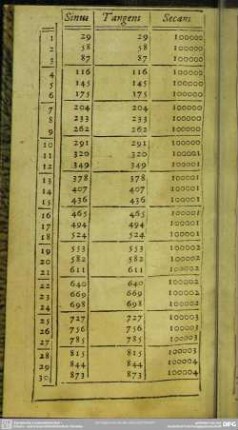 Sinus Tangens Secans
1 29 29 100000
2 58 58 100000
3 87 87 100000
4 116 116 100000
5 145 145 100000
6 175 175 100000
7 204 204 100000
8 233 233 100000
9 262 262 100000
10 291 291 100000
11 320 320 100001
12 349 349 100001
13 378 378 100001
14 407 407 100001
15 436 436 100001
16 465 465 100001
17 494 494 100001
18 524 524 100001
19 553 553 100002
20 582 582 100002
21 611 611 100002
22 640 640 100002
23 669 669 100002
24 698 698 100002
25 727 727 100003
26 756 756 100003
27 785 785 100003
28 815 815 100003
29 844 844 100004
30 873 873 100004
DFG